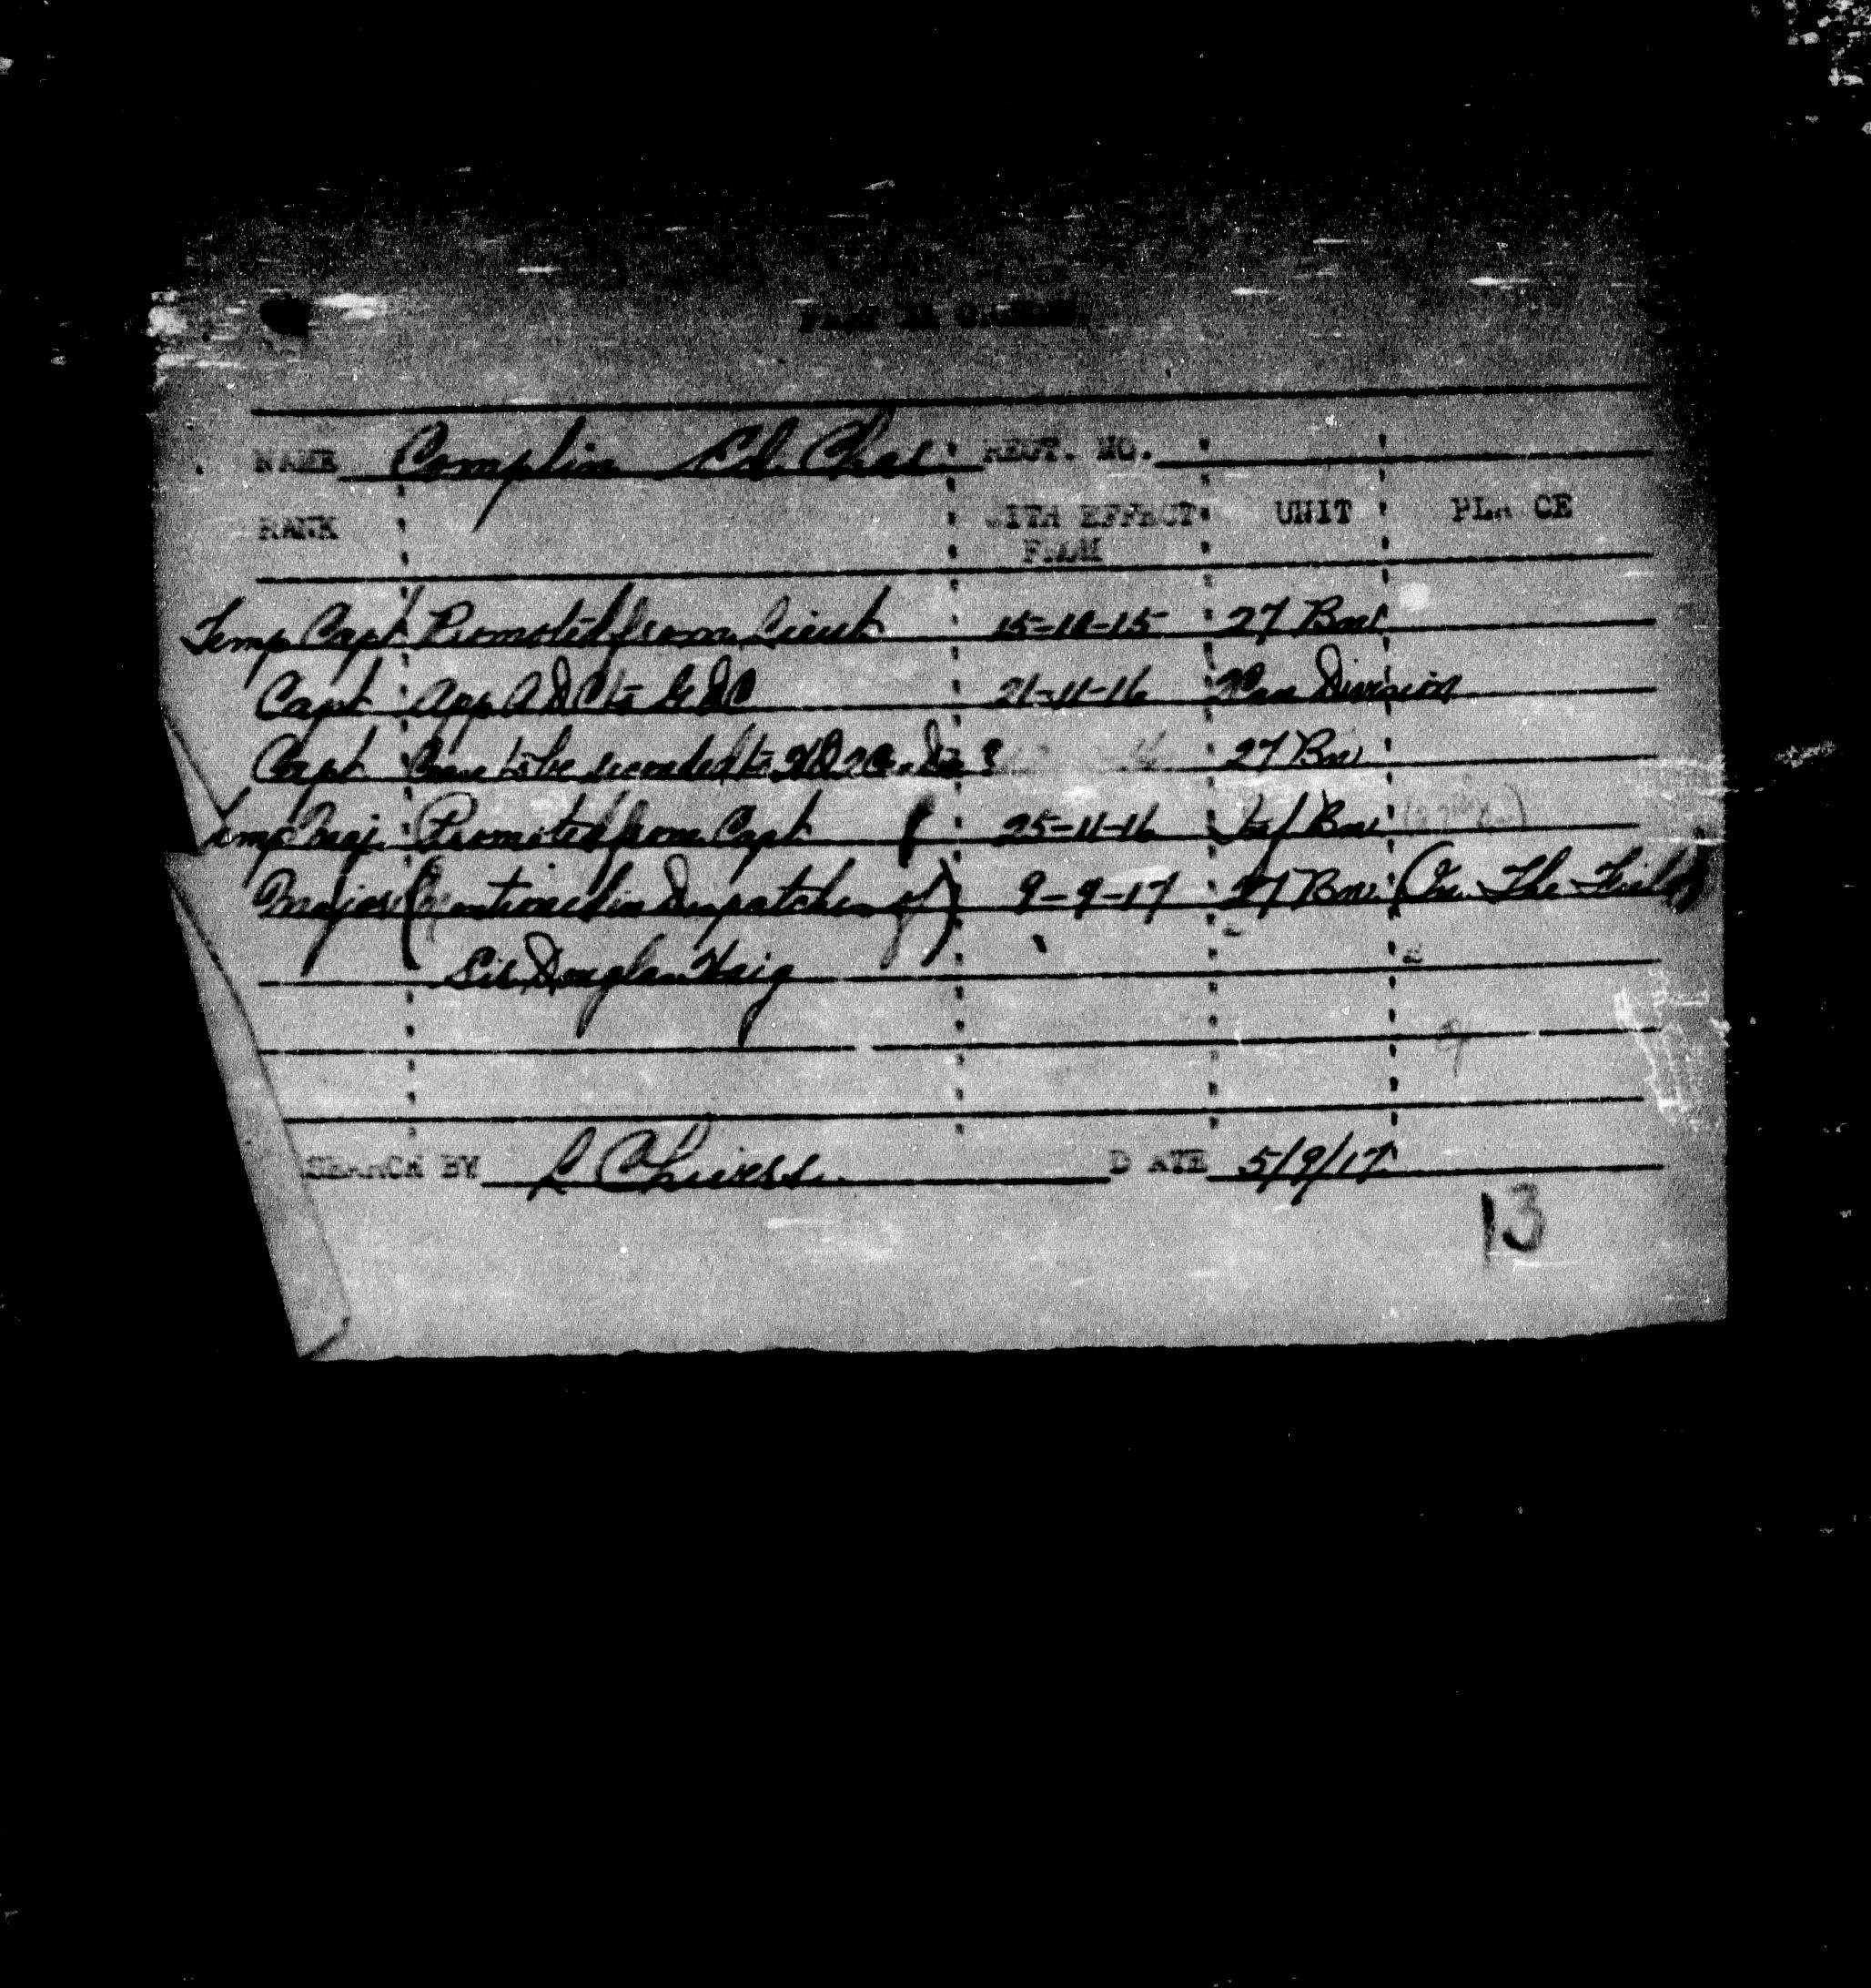 PART II ORDERS.
NAME Complin Ed. Chas. REGT. NO.
RANK WITH EFFECT FROM UNIT PLACE
Temp Capt Promoted from Lieut 15-10-15 27 Bn
Capt App A D C to G O C 21-11-16 2 Can Division
Capt to be seconded to 27 Bn
Temp Maj. Promoted from Capt 25-11-16 Bn
Major (Mentioned in Despatches of) 9-4-17 27 Bn. (In The Field)
Sir Douglas Haig
SEARCH BY DATE 5/9/17
13